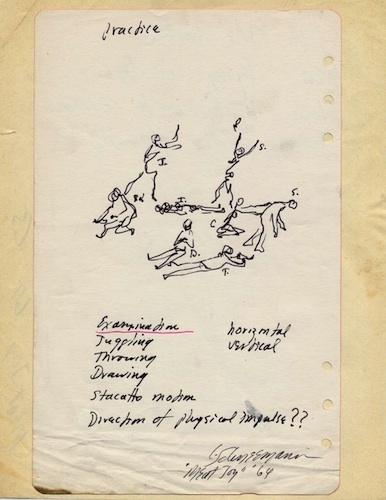 practice
P.
S.
I.
Bd
I.
S.
C
D.
T.
Examination
Juggling
Throwing
Drawing
Stacatto motion
Direction of physical impulse??
horizontal
vertical
C Schneemann
"Meat Joy" '64